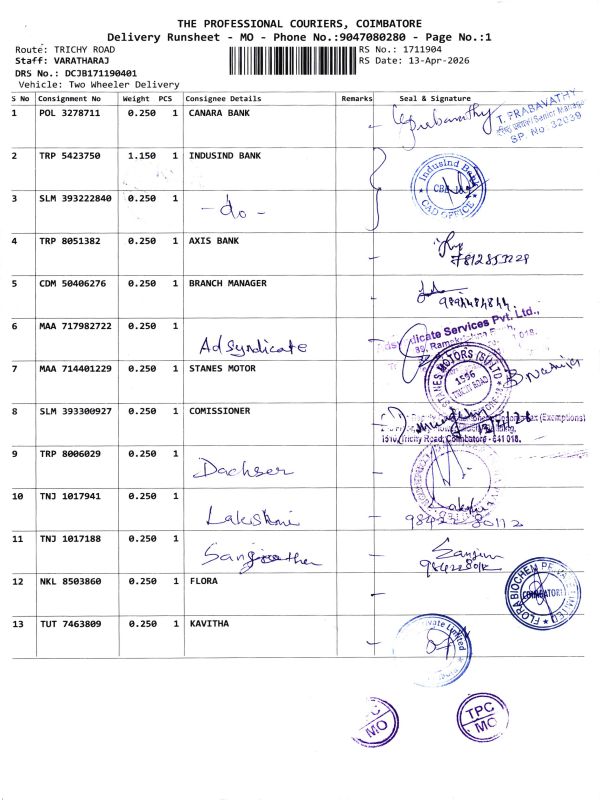 THE PROFESSIONAL COURIERS, COIMBATORE
Delivery Runsheet - MO - Phone No.:9047080280 - Page No.:1
Route: TRICHY ROAD RS No.: 1711904
Staff: VARATHARAJ RS Date: 13-Apr-2026
DRS No.: DCJB171190401
Vehicle: Two Wheeler Delivery
S No Consignment No Weight PCS Consignee Details Remarks Seal & Signature
1 POL 3278711 0.250 1 CANARA BANK Prabavathy
T. PRABAVATHY
Senior Manager
SP. No. 32039
2 TRP 5423750 1.150 1 INDUSIND BANK
IndusInd Bank
CAD OFFICE
3 SLM 393222840 0.250 1 -do-
4 TRP 8051382 0.250 1 AXIS BANK
7812853229
5 CDM 50406276 0.250 1 BRANCH MANAGER
6 MAA 717982722 0.250 1 Adsyndicate
Adsyndicate Services Pvt. Ltd.,
7 MAA 714401229 0.250 1 STANES MOTOR
STANES MOTORS (SI) LTD
1556
TRICHY ROAD
8 SLM 393300927 0.250 1 COMISSIONER
Tax (Exemptions)
1510, Tricity Road, Coimbatore - 641 018.
9 TRP 8006029 0.250 1 Dachser
10 TNJ 1017941 0.250 1 Lakshmi
11 TNJ 1017188 0.250 1 Sangeetha
12 NKL 8503860 0.250 1 FLORA
FLORA BIOCHEM PRIVATE LIMITED
COIMBATORE
13 TUT 7463809 0.250 1 KAVITHA
Private Limited
TPC
MO
TPC
MO